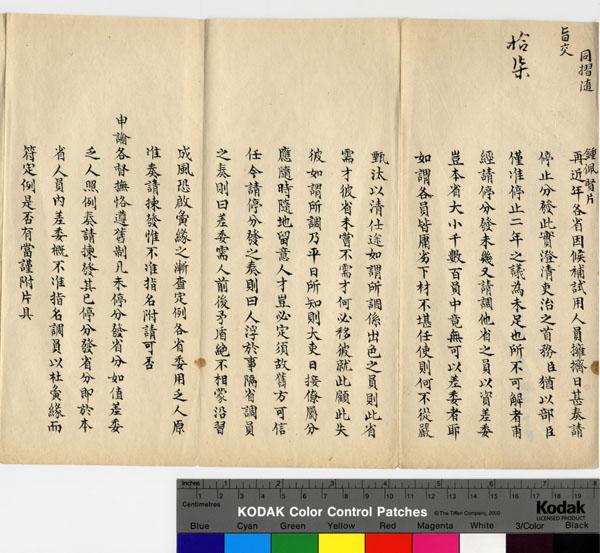 同摺隨
旨交
拾柒
鍾佩賢片
再近年各省因候補試用人員擁擠日甚奏請
停止分發此實澄清吏治之首務臣猶以部臣
僅准停止二年之議為未足也所不可解者甫
經請停分發未幾又請調他省之員以資差委
豈本省大小千數百員中竟無可以差委者耶
如謂各員皆屬劣下材不堪任使則何不從嚴
甄汰以清仕途如謂所調係出色之員則此省
需才彼省未嘗不需才何必移彼就此顧此失
彼如謂所調乃平日所知則大吏日接僚屬分
應隨時隨地留意人才豈必定須故舊方可信
任今請停分發之奏則曰人浮於事隔省調員
之奏則曰差委需人前後矛盾絕不相蒙沿習
成風恐啟夤緣之漸查定例各省委用乏人原
准奏請揀發惟不准指名附請可否
申諭各督撫恪遵舊制凡未停分發省分如值差委
乏人照例奏請揀發其已停分發省分即於本
省人員內差委概不准指名調員以杜夤緣而
符定例是否有當謹附片具
Inches 1 2 3 4 5 6 7 8
Centimetres 1 2 3 4 5 6 7 8 9 10 11 12 13 14 15 16 17 18 19
KODAK Color Control Patches
© The Tiffen Company, 2000
Kodak
LICENSED PRODUCT
Blue Cyan Green Yellow Red Magenta White 3/Color Black